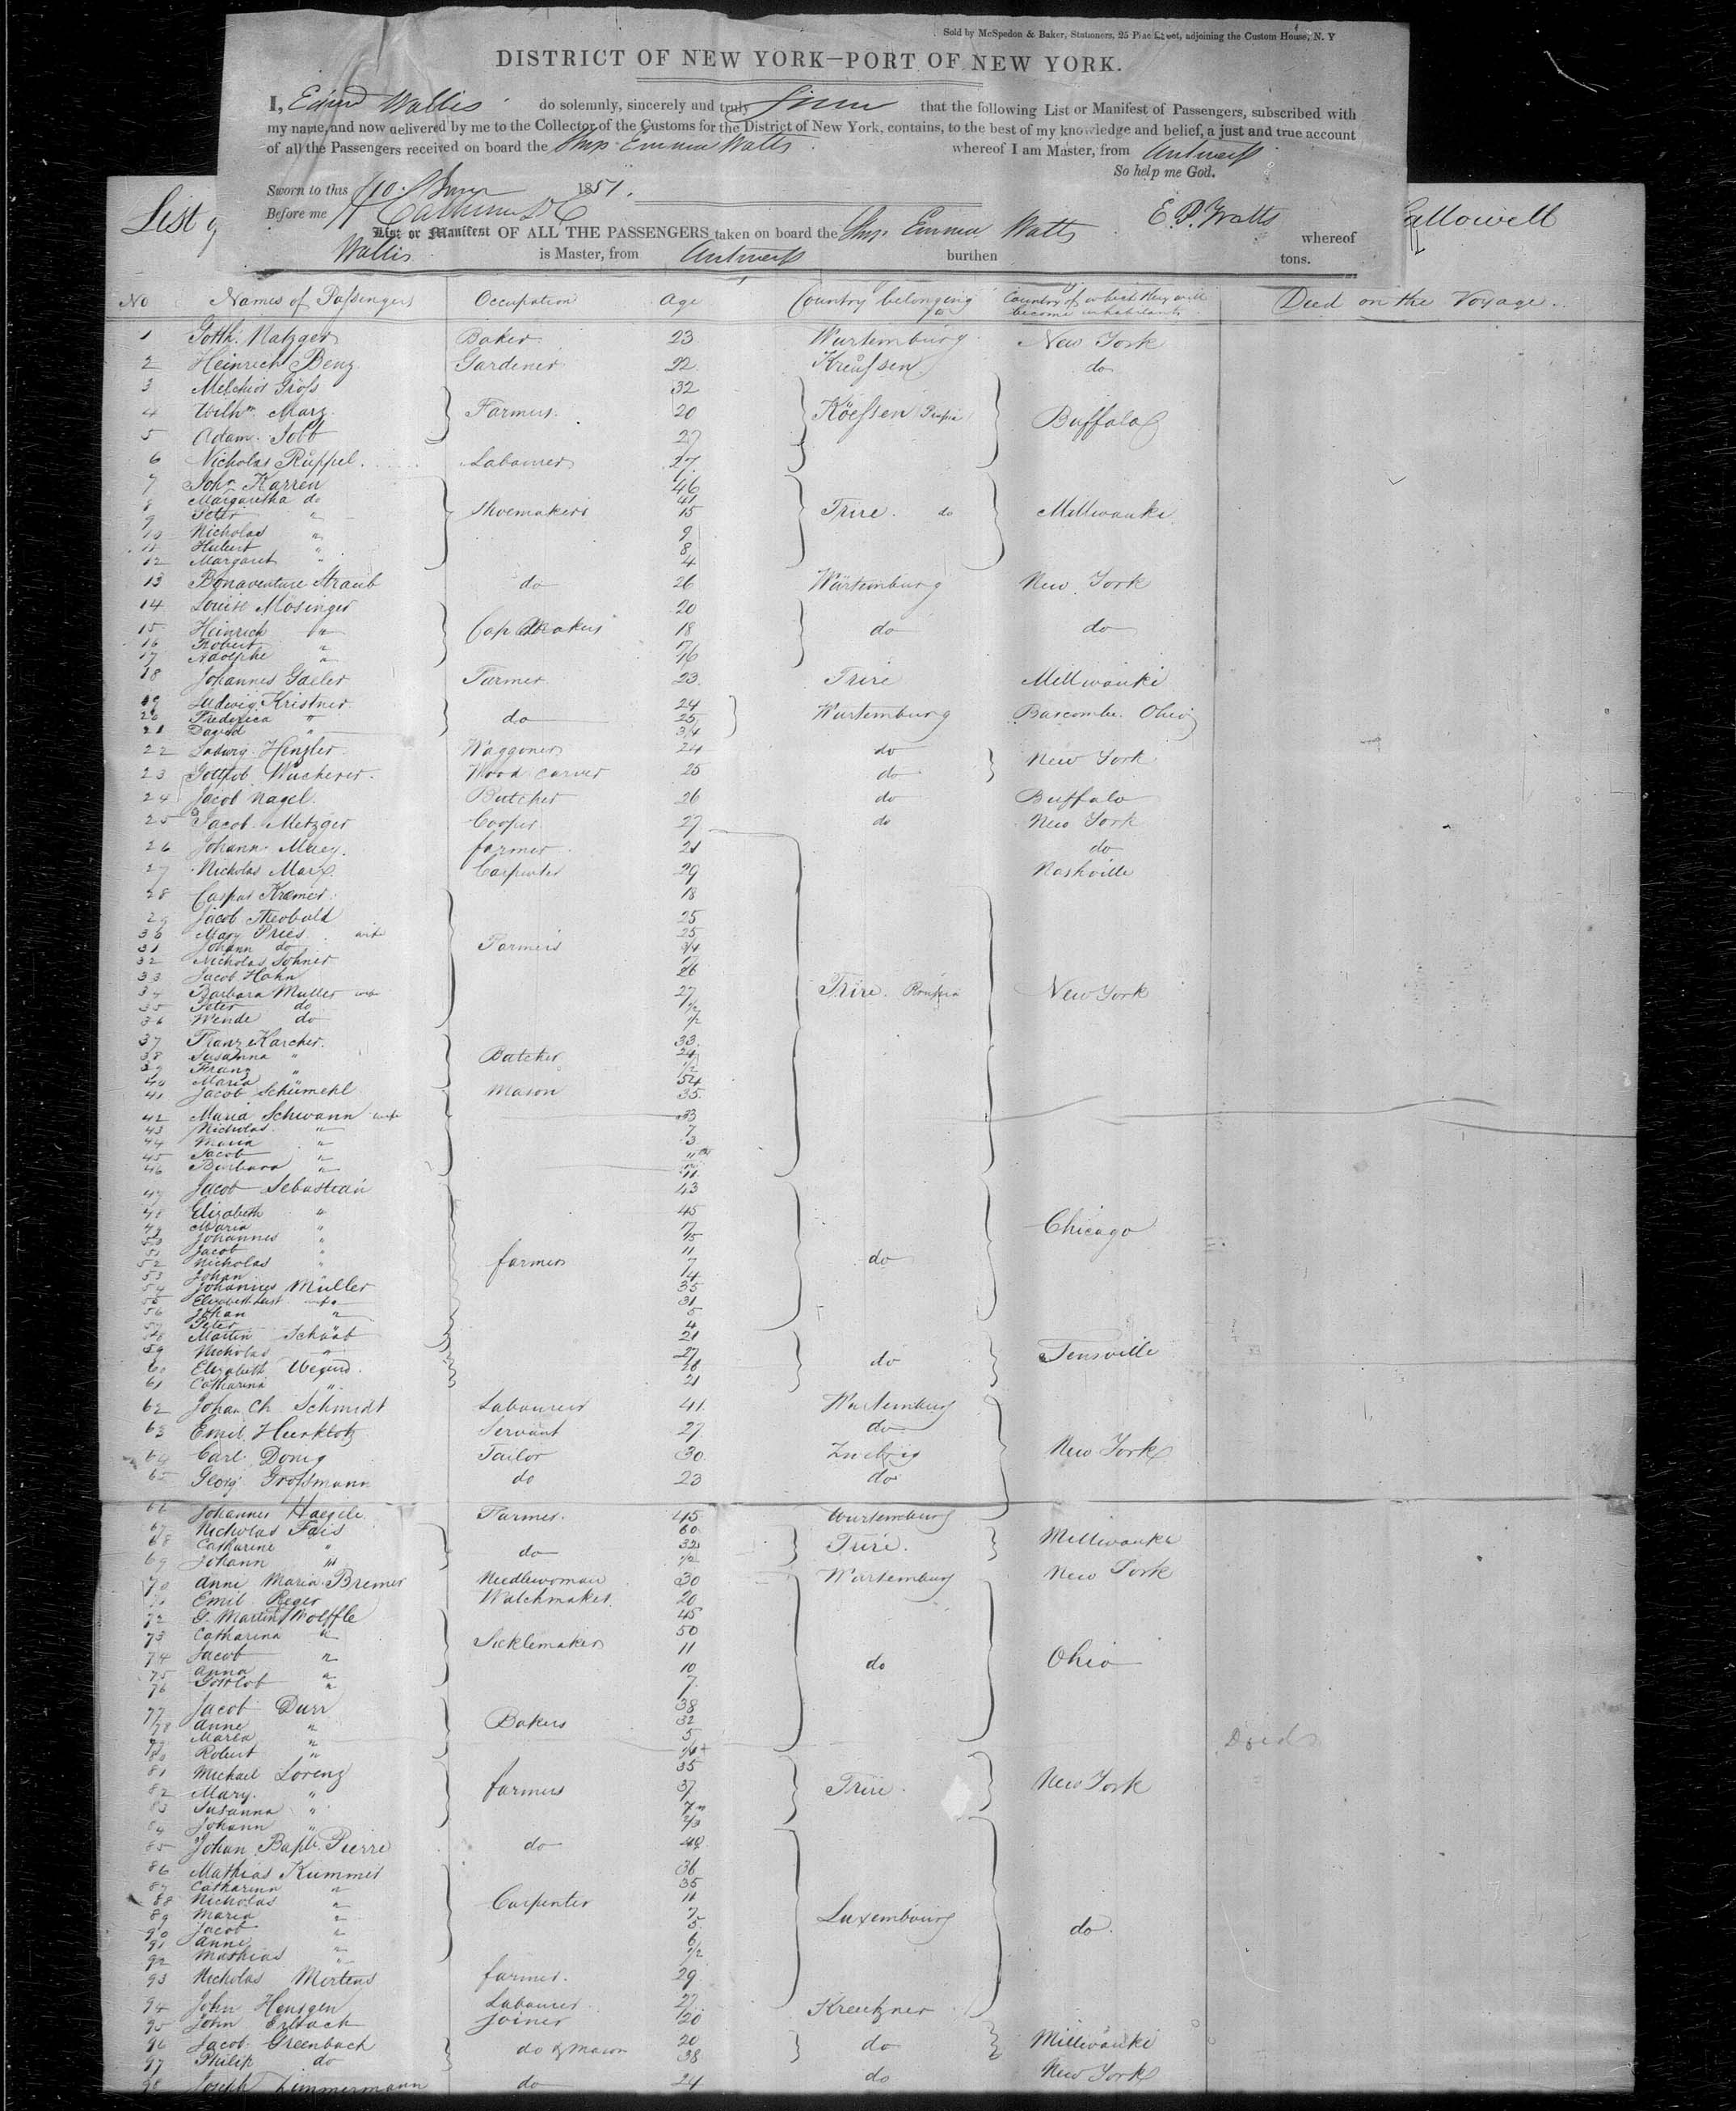 Sold by McSpedon & Baker, Stationers, 25 Pine Street, adjoining the Custom House, N. Y
DISTRICT OF NEW YORK—PORT OF NEW YORK.
I, Wallis do solemnly, sincerely and truly that the following List or Manifest of Passengers, subscribed with
my name, and now delivered by me to the Collector of the Customs for the District of New York, contains, to the best of my knowledge and belief, a just and true account
of all the Passengers received on board the Ship Emma Watts whereof I am Master, from Antwerp
So help me God.
Sworn to this 10 1851.
Before me
E. P. Watts
List or Manifest OF ALL THE PASSENGERS taken on board the Ship Emma Watts whereof
Wallis is Master, from Antwerp burthen tons.
List allowell
No Names of Passengers Occupation Age Country belonging to Country of which they will become inhabitants Died on the Voyage.
1 Gotth. Natzger Baker 23 Wurtemburg New York
2 Heinrich Benz Gardener 22 Kreussen do
3 Melchior Gross 32
4 Wilhm. Marz Farmers 20 Buffalo
5 Adam 27
6 Nicholas Rüppel Labourer 27
7 John Karren 46
8 Margaretha do 41
9 Peter " Shoemakers 15 Trire do Millwauki
10 Nicholas " 9
11 Hubert " 8
12 Margaret " 4
13 Bonaventure Straub do 26 Würtemburg New York
14 Louise Mosinger 20
15 Heinrich " Cap Makers 18 do do
16 Robert " 17
17 Adolphe " 16
18 Johannes Gaeler Farmer 23 Trire Millwauki
19 Ludwig Kristner 24
20 Frederica " do 25 Wurtemburg Barcombe Ohio
21 David " 3/4
22 Ludwig Henzler Waggoner 24 do New York
23 Gottlob Wucherer Wood carver 25 do
24 Jacob Nagel Butcher 26 do Buffalo
25 Jacob Metzger Cooper 27 do New York
26 Johann Maey farmer 21 do
27 Nicholas Marx Carpenter 29 Nashville
28 Caspar Kramer 18
29 Jacob Theobald 25
30 Mary Pries wife 25
31 Johann do Farmers 3/4
32 Nicholas Johner 17
33 Jacob Hahn 26
34 Barbara Muller wife 27 Trire Prussia New York
35 Peter do 1 1/2
36 Wende do 1/2
37 Franz Karcher 33
38 Susanna " Butcher 24
39 Franz " 1/2
40 Maria " 54
41 Jacob Schümehl Mason 35
42 Maria Schwann wife 33
43 Nicholas " 7
44 Maria " 3
45 Jacob "
46 Barbara " 11
47 Jacob Sebastian 43
48 Elizabeth " 45
49 Maria " 17 Chicago
50 Johannes " 15
51 Jacob " 11
52 Nicholas " farmers 7 do
53 Johan " 14
54 Johannes Müller 35
55 Elizabeth wife 31
56 Johan " 5
57 Peter " 4
58 Martin Schaat 21
59 Nicholas " 27
60 Elizabeth 28 do
61 Catharina " 21
62 Johan Ch. Schmidt Labourer 41 Wurtemburg
63 Emil Hurklotz Servant 27 do
64 Carl Donig Tailor 30 New York
65 Georg Grossmann do 23 do
66 Johannes Haegele Farmer 45 Wurtemburg
67 Nicholas Fais 60
68 Catharine " do 32 Trire Millwauki
69 Johann " 1/2
70 Anne Maria Bremer Needlewoman 30 Wurtemburg New York
71 Emil Reger Watchmaker 20
72 G. Martin Wolffle 45
73 Catharina " Sicklemaker 50
74 Jacob " 11 do Ohio
75 Anna " 10
76 Gottlob " 7
77 Jacob Durr 38
78 Anne " Bakers 32
79 Maria " 5
80 Robert " Died
81 Michael Lorenz 35
82 Mary " farmers 37 Trire New York
83 Susanna " 7
84 Johann " 2/3
85 Johan Bapt. Pierre do
86 Mathias Kümmer 36
87 Catharina " 35
88 Nicholas " Carpenter 11
89 Maria " 7 Luxembourg do
90 Jacob " 5
91 Anne " 6
92 Mathias " 1/2
93 Nicholas Mertens farmer 29
94 John Hensgen Labourer 27 Kreutzner
95 John Erlbach joiner 20
96 Jacob Greenbach do & Mason 20 do Millwauki
97 Philip do 38
98 Joseph Zimmermann do 24 do New York